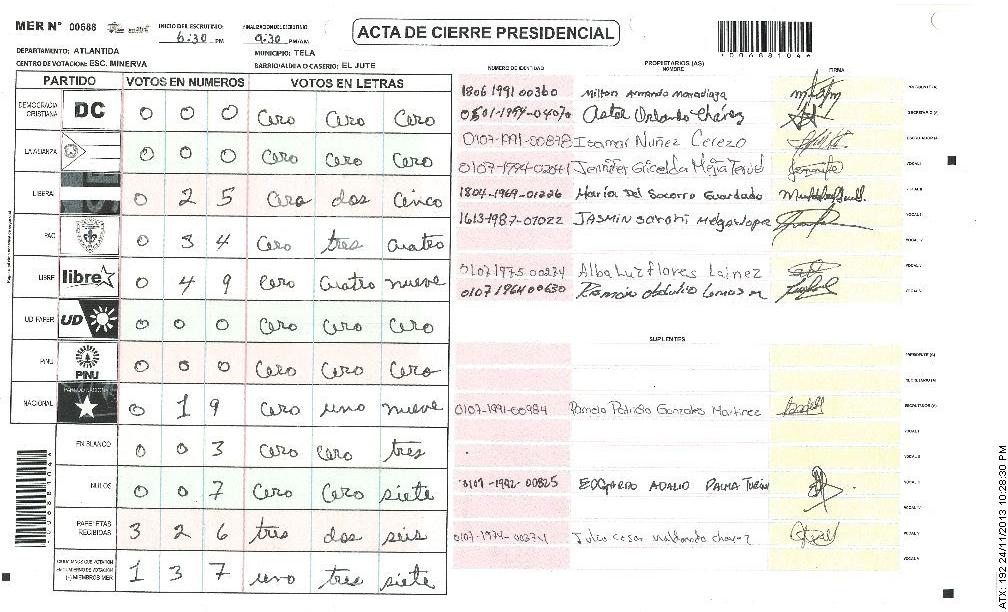 MER N° 00688 INICIO DEL ESCRUTINIO: 6:30 PM FINALIZACION ESCRUTINIO: 9:30 PM/AM ACTA DE CIERRE PRESIDENCIAL
DEPARTAMENTO: ATLANTIDA MUNICIPIO: TELA
CENTRO DE VOTACION: ESC. MINERVA BARRIO/ALDEA O CASERIO: EL JUTE
PARTIDO VOTOS EN NUMEROS VOTOS EN LETRAS
DEMOCRACIA CRISTIANA DC 0 0 0 Cero Cero Cero
LA ALIANZA 0 0 0 Cero Cero Cero
LIBERAL 0 2 5 Cero dos Cinco
PAC 0 3 4 Cero tres Cuatro
LIBRE libre 0 4 9 Cero Cuatro nueve
UD FAPER UD 0 0 0 Cero Cero Cero
PINU PINU 0 0 0 Cero Cero Cero
NACIONAL 0 1 9 Cero uno nueve
EN BLANCO 0 0 3 Cero Cero tres
NULOS 0 0 7 Cero Cero siete
PAPELETAS RECIBIDAS 3 2 6 tres dos seis
(-) MIEMBROS MER 1 3 7 uno tres siete
NUMERO DE IDENTIDAD PROPIETARIOS (AS) NOMBRE FIRMA
1806 1991 00360 Milton Armando Maradiaga
0501-1994-04070 Astor Orlando Chávez
0107-1991-00878 Isamar Nuñez Cerezo
Jennifer Griselda Mejia
1804-1969-01226 Maria Del Socorro Guardado
1613-1987-07022 JASMIN
0107 1975 00274 Alba Luz flores Lainez
0107 1964 00630
SUPLENTES
0107-1991-00984 Pamela Patricia Gonzales Martinez
0107-1992-00825 EDGARDO ADALID PALMA
0107-1974-00274 Julio cesar maldonado chavez
ATX: 192 24/11/2013 10:28:30 PM